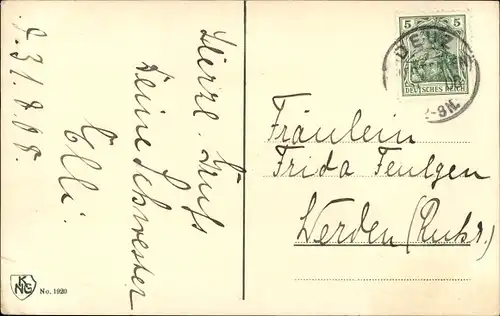 d. 31.8.08.
Herzl. Gruß
Deine Schwester
Elli.
5 5
DEUTSCHES REICH
DEUZ
Fräulein
Frida Feulgen
Werden (Ruhr.)
KNG
No. 1920